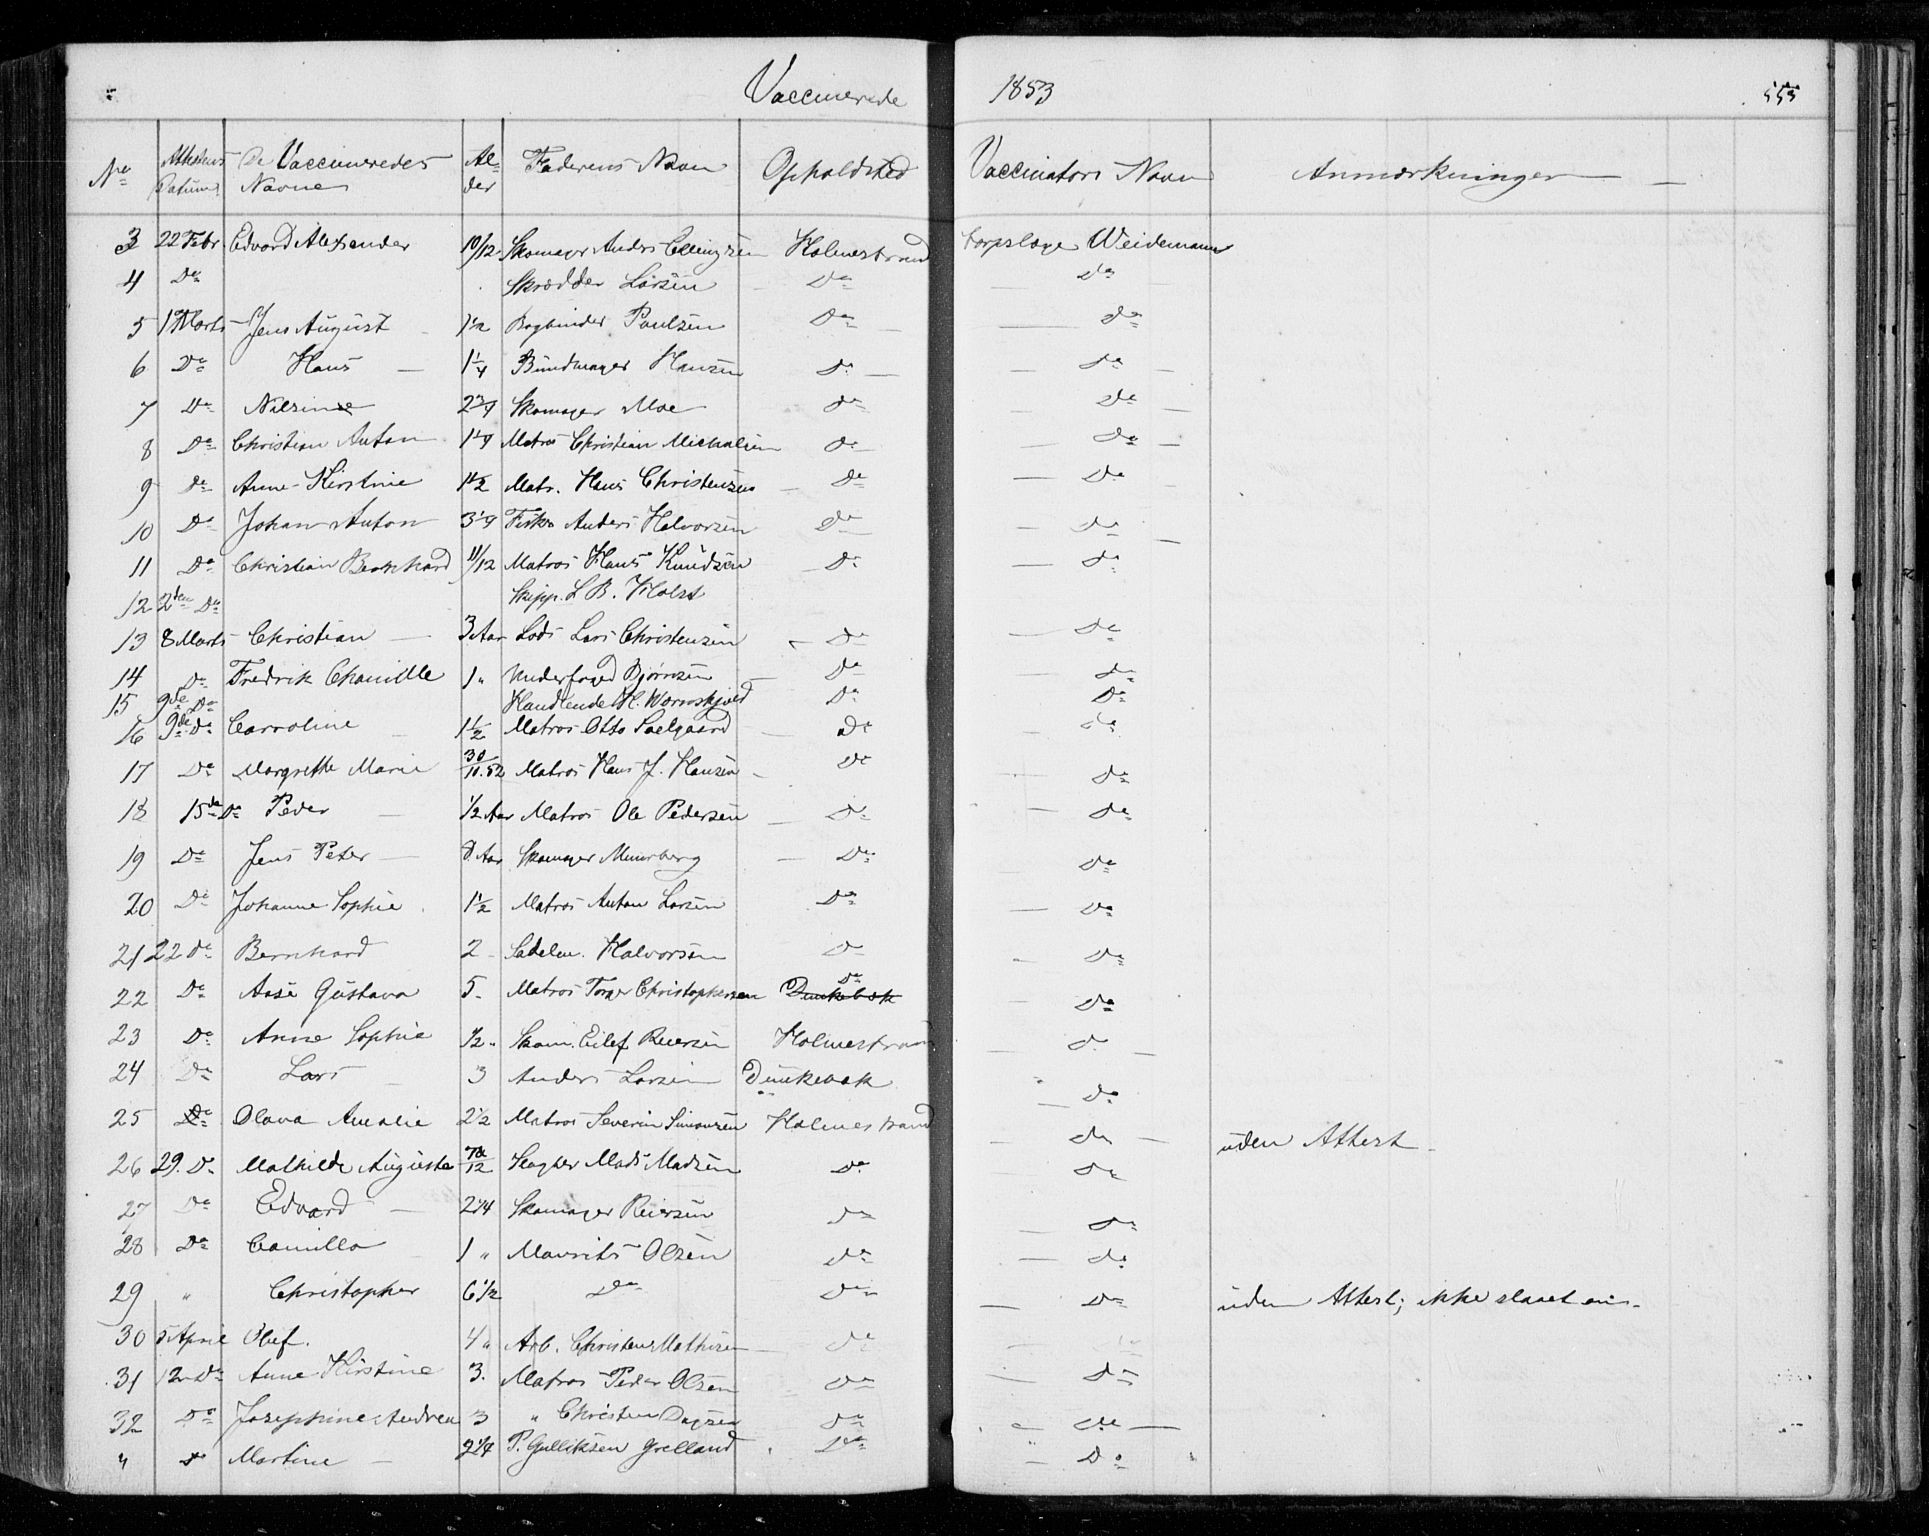 Vaccinerede 1853 553
No Attestens Datum De Vaccineredes Navne Alder Faderens Navn Opholdsted Vaccinators Navn Anmærkninger
3 22 Febr. Edvard Alexander 10/12 Skomager Anders Ellingsen Holmestrand Corpslæge Weidemann
4 Do Skrædder Larsen Do Do
5 1 Marts Jens August 1½ Bogbinder Paulsen Do do
6 Do Hans 1¼ Bundtmager Hansen Do do
7 Do Nilsine 2¾ Skomager Moe do do
8 Do Christian Anton 1¼ Matros Christian Michalsen do do
9 do Anne Kirstine 1½ Matr. Hans Christensen do Do
10 Do Johan Anton 3¼ Fisker Anders Halvorsen Do do
11 Do Christian Bernhard 11/12 Matros Hans Knudsen Do do
12 2den Do Skipp. L B. Holst
13 8 Marts Christian 3 Aar Lods Lars Christensen Do do
14 Do Fredrik Chamille 1 " Underfoged Bjørnsen Do do
15 9de Do Handlende H. Wormskjold Do Do
16 9de do Carroline 1½ Matros Otto Solgaard do do
17 Do Margrethe Marie 30/11.52 Matros Hans J. Hansen do do
18 15de Do Peder ½ Aar Matros Ole Pedersen Do do
19 Do Jens Peter 8 Aar Skomager Munsberg Do Do
20 Do Johanne Sophie 1½ Matros Anton Larsen Do Do
21 22 do Bernhard 2 Sadelm. Halvorsen Do Do
22 Do Aase Gustava 5. Matros Torger Christophersen Dunkebæk Do Do
23 Do Anne Sophie ½ Skom. Eilef Reiersen Holmestrand do
24 Do Lars 3 Anders Larsen Dunkebæk do
25 Do Olava Amalie 2½ Matros Severin Simonsen Holmestrand do uden Attest
26 29. Do Mathilde Augusta /12 Slagter Mads Madsen Do do
27 Do Edvard 2¼ Skomager Reiersen do do
28 Do Camilla 1 " Mavrits Olsen do do
29 " Christopher 6½ Do Do Do uden Attest; ikke slaaet an.
30 5 April Olef. 4 " Arb. Christen Mathisen do
31 12 Do Anne Kirstine 3. Matros Peder Olsen do do
32 Do Josephine Andrea 3 " Christen Dagsen do do
" do Martine 2¼ P. Gulliksen Grelland Do Do